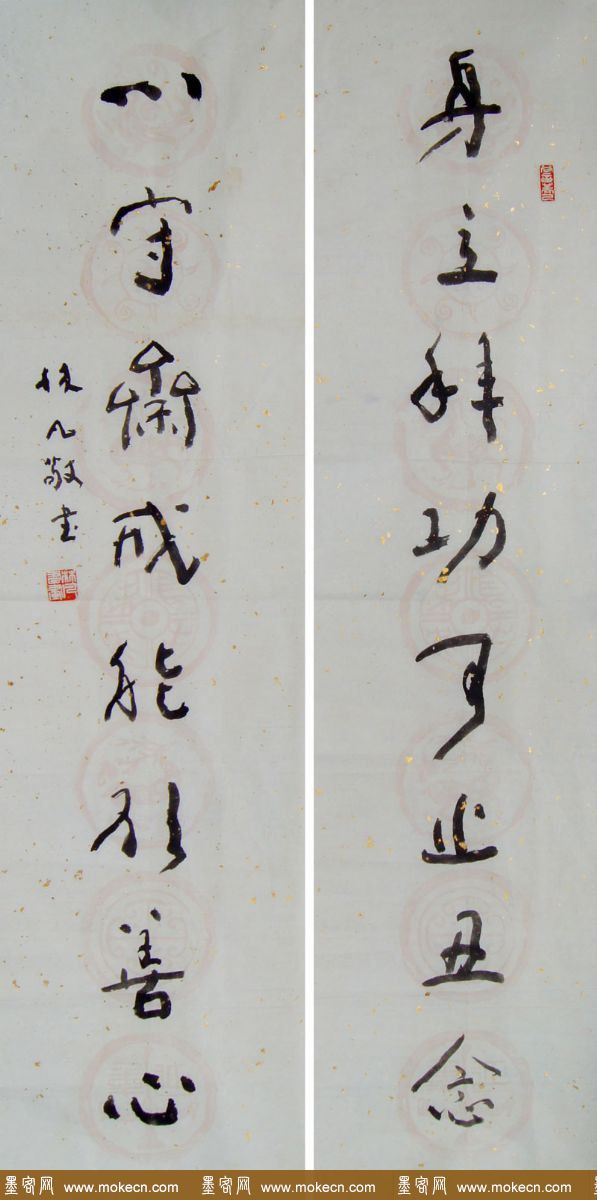 身立拜功可止丑念
心守齋戒能善心
林凡敬书
墨客网 www.mokecn.com 墨客网 www.mokecn.com 墨客网 www.mokecn.com